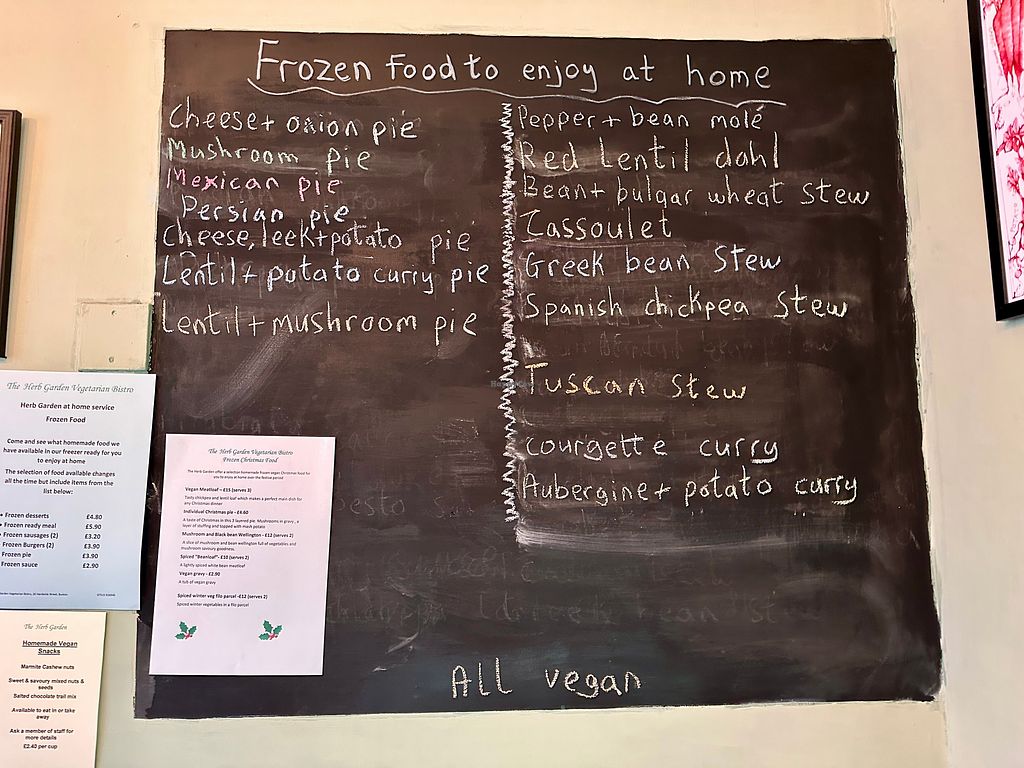 Frozen Food to enjoy at home
Cheese + onion pie
Mushroom pie
Mexican pie
Persian pie
Cheese, leek + potato pie
Lentil + potato curry pie
Lentil + mushroom pie
Pepper + bean molé
Red Lentil dahl
Bean + bulgar wheat stew
Cassoulet
Greek bean stew
Spanish chickpea stew
Tuscan stew
courgette curry
Aubergine + potato curry
All vegan
The Herb Garden Vegetarian Bistro
Herb Garden at home service
Frozen Food
Come and see what homemade food we
have available in our freezer ready for you
to enjoy at home
The selection of food available changes
all the time but include items from the
list below:
Frozen desserts £4.80
Frozen ready meal £5.90
Frozen sausages (2) £3.20
Frozen Burgers (2) £3.90
Frozen pie £3.90
Frozen sauce £2.90
The Herb Garden Vegetarian Bistro
Frozen Christmas Food
The Herb Garden offer a selection homemade frozen vegan Christmas food for
you to enjoy at home over the festive period
Vegan Meatloaf – £15 (serves 3)
Tasty chickpea and lentil loaf which makes a perfect main dish for
any Christmas dinner
Individual Christmas pie - £4.60
A taste of Christmas in this 3 layered pie. Mushrooms in gravy, a
layer of stuffing and topped with mash potato
Mushroom and Black bean Wellington - £12 (serves 2)
A slice of mushroom and bean wellington full of vegetables and
mushroom savoury goodness.
Spiced "Beanloaf" - £10 (serves 2)
A lightly spiced white bean meatloaf
Vegan gravy - £2.90
A tub of vegan gravy
Spiced winter veg filo parcel -£12 (serves 2)
Spiced winter vegetables in a filo parcel
The Herb Garden
Homemade Vegan
Snacks
Marmite Cashew nuts
Sweet & savoury mixed nuts &
seeds
Salted chocolate trail mix
Available to eat in or take
away
Ask a member of staff for
more details
£2.40 per cup